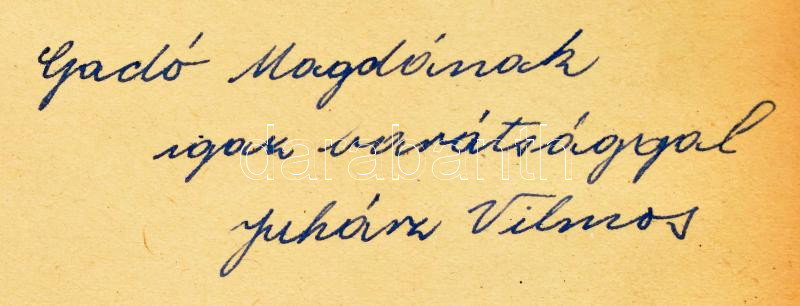 Gadó Magdának
igaz barátsággal
Juhász Vilmos
darabanth